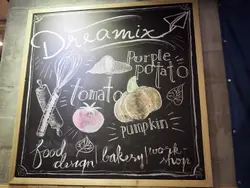 Dreamix
purple
potato
tomato
pumpkin
food bakery work-
design shop